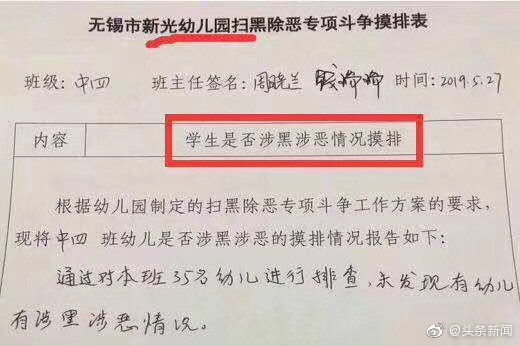 无锡市新光幼儿园扫黑除恶专项斗争摸排表
班级：中四 班主任签名：周晓兰 时间：2019.5.27
内容 学生是否涉黑涉恶情况摸排
根据幼儿园制定的扫黑除恶专项斗争工作方案的要求，
现将中四班幼儿是否涉黑涉恶的摸排情况报告如下：
通过对本班35名幼儿进行排查，未发现有幼儿
有涉黑涉恶情况。
@头条新闻